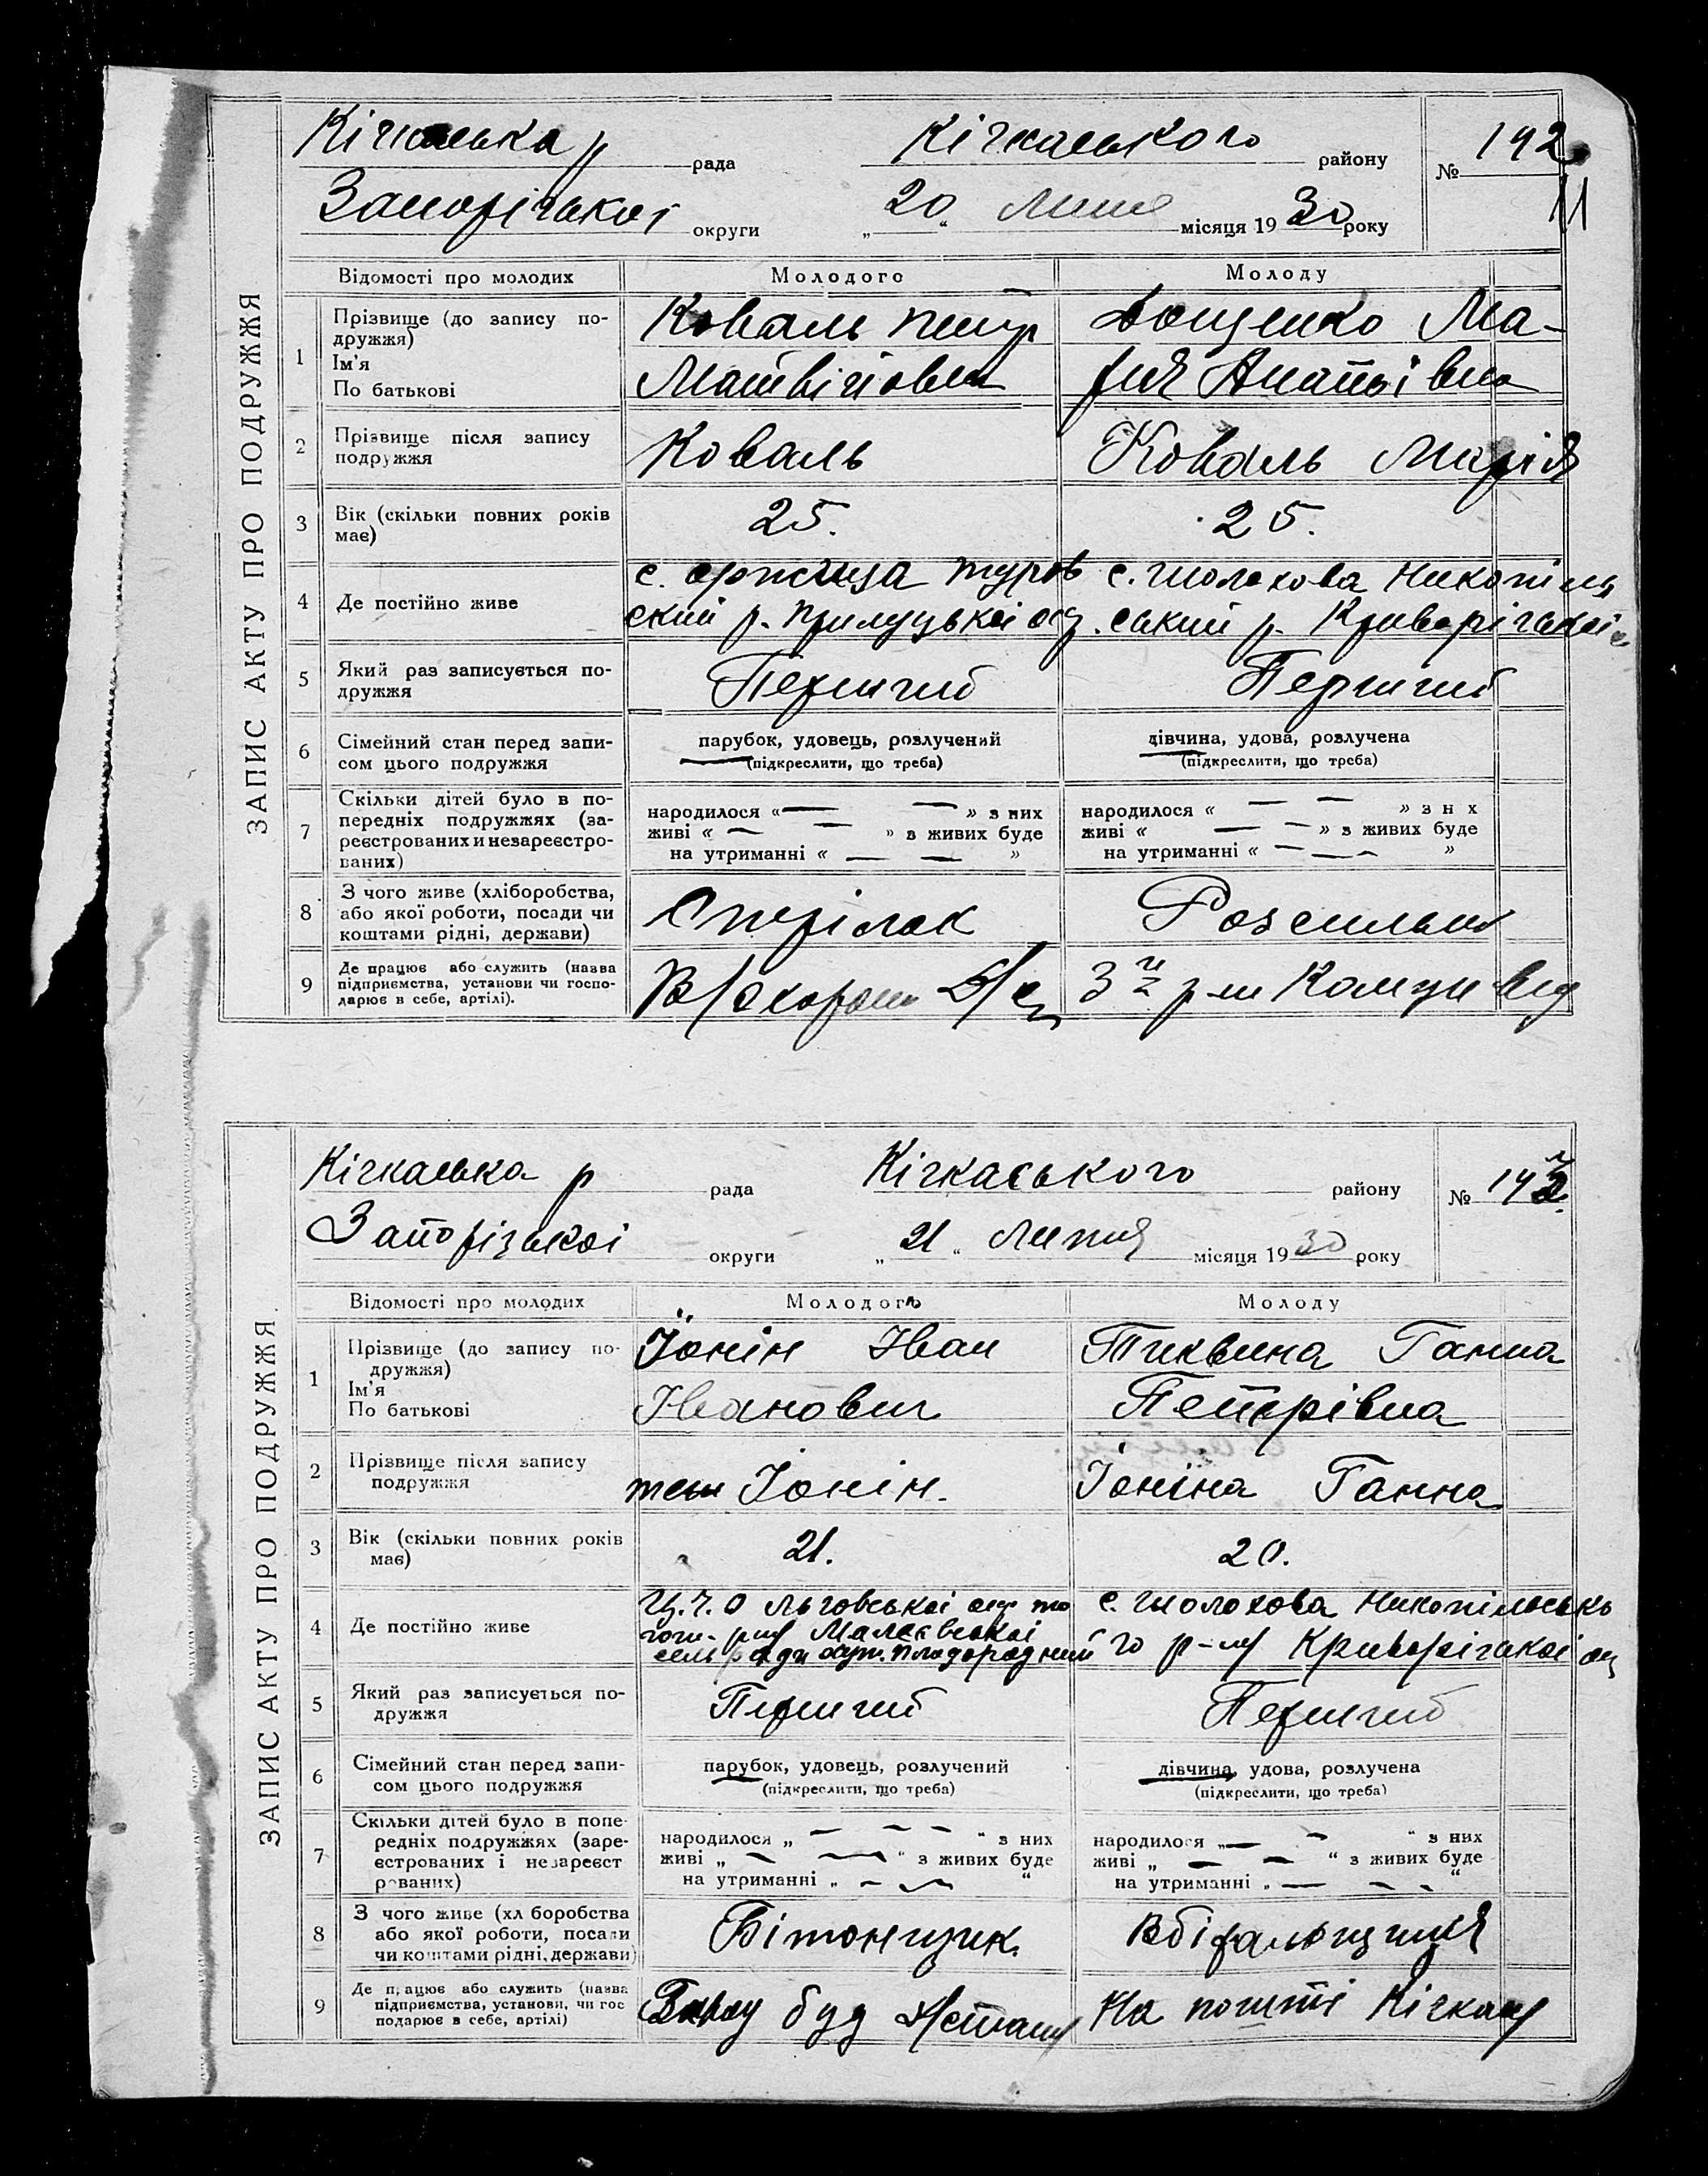 ЗАПИС АКТУ ПРО ПОДРУЖЖЯ
Кічкаська р рада Кічкаського району № 142
11
Запорізької округи „20“ Липня місяця 1930 року
Відомості про молодих Молодого Молоду
1 Прізвище (до запису по-
дружжя)
Ім'я
По батькові
Коваль Петр
Матвійович
Доценко Ма-
рия
2 Прізвище після запису
подружжя
Коваль
Коваль Марія
3 Вік (скільки повних років
має)
25.
25.
4 Де постійно живе
с. оржица туров
ский р. Прилуцької окр.
с. шолохова Никопіль
ський р. Криворізької
5 Який раз записується по-
дружжя
Перший
Перший
6 Сімейний стан перед запи-
сом цього подружжя
парубок, удовець, розлучений
(підкреслити, що треба)
дівчина, удова, розлучена
(підкреслити, що треба)
7 Скільки дітей було в по-
передніх подружжях (за-
реєстрованих и незареєстро-
ваних)
народилося «— —» з них
живі «— —» з живих буде
на утриманні «— —»
народилося «— —» з н х
живі «— —» з живих буде
на утриманні «— — —»
8 З чого живе (хліборобства,
або якої роботи, посади чи
коштами рідні, держави)
Стрілок
Розсильна
9 Де працює або служить (назва
підприємства, установи чи госпо-
дарює в себе, артілі).
В/охорони
ЗАПИС АКТУ ПРО ПОДРУЖЖЯ
Кічкаська р рада Кічкаського району № 143
Запорізької округи „21“ Липня місяця 1930 року
Відомості про молодих Молодого Молоду
1 Прізвище (до запису по-
дружжя)
Ім'я
По батькові
Їонін Иван
Иванович
Тиквина Ганна
Петрівна
2 Прізвище після запису
подружжя
Іонін.
Іоніна Ганна
3 Вік (скільки повних років
має)
21.
20.
4 Де постійно живе
Ц.Ч.О Льговської окр
сельради хут. Плодородний
с. шолохова Никопільсько
го р-ну Криворізької ок
5 Який раз записується по-
дружжя
Перший
Перший
6 Сімейний стан перед запи-
сом цього подружжя
парубок, удовець, розлучений
(підкреслити, що треба)
дівчина, удова, розлучена
(підкреслити, що треба)
7 Скільки дітей було в попе-
редніх подружжях (заре-
єстрованих і незареєст
рованих)
народилося „— — —“ з них
живі „— —“ з живих буде
на утриманні „— —“
народилося „— —“ з них
живі „— —“ з живих буде
на утриманні „— — —“
8 З чого живе (хл боробства
або якої роботи, посади
чи коштами рідні, держави)
Бітонщик.
9 Де працює або служить (назва
підприємства, установи, чи гос
подарює в себе, артілі)
буд
На пошті Кічкас